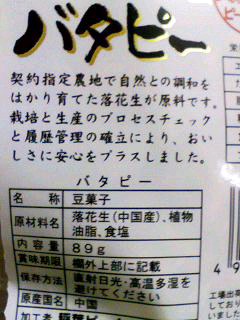 バタピー
契約指定農地で自然との調和を
はかり育てた落花生が原料です。
栽培と生産のプロセスチェック
と履歴管理の確立により、おい
しさに安心をプラスしました。
バタピー
名称 豆菓子
原材料名 落花生(中国産)、植物
油脂、食塩
内容量 89g
賞味期限 欄外上部に記載
保存方法 直射日光・高温多湿を
避けてください
原産国名 中国
加工者
工場出荷